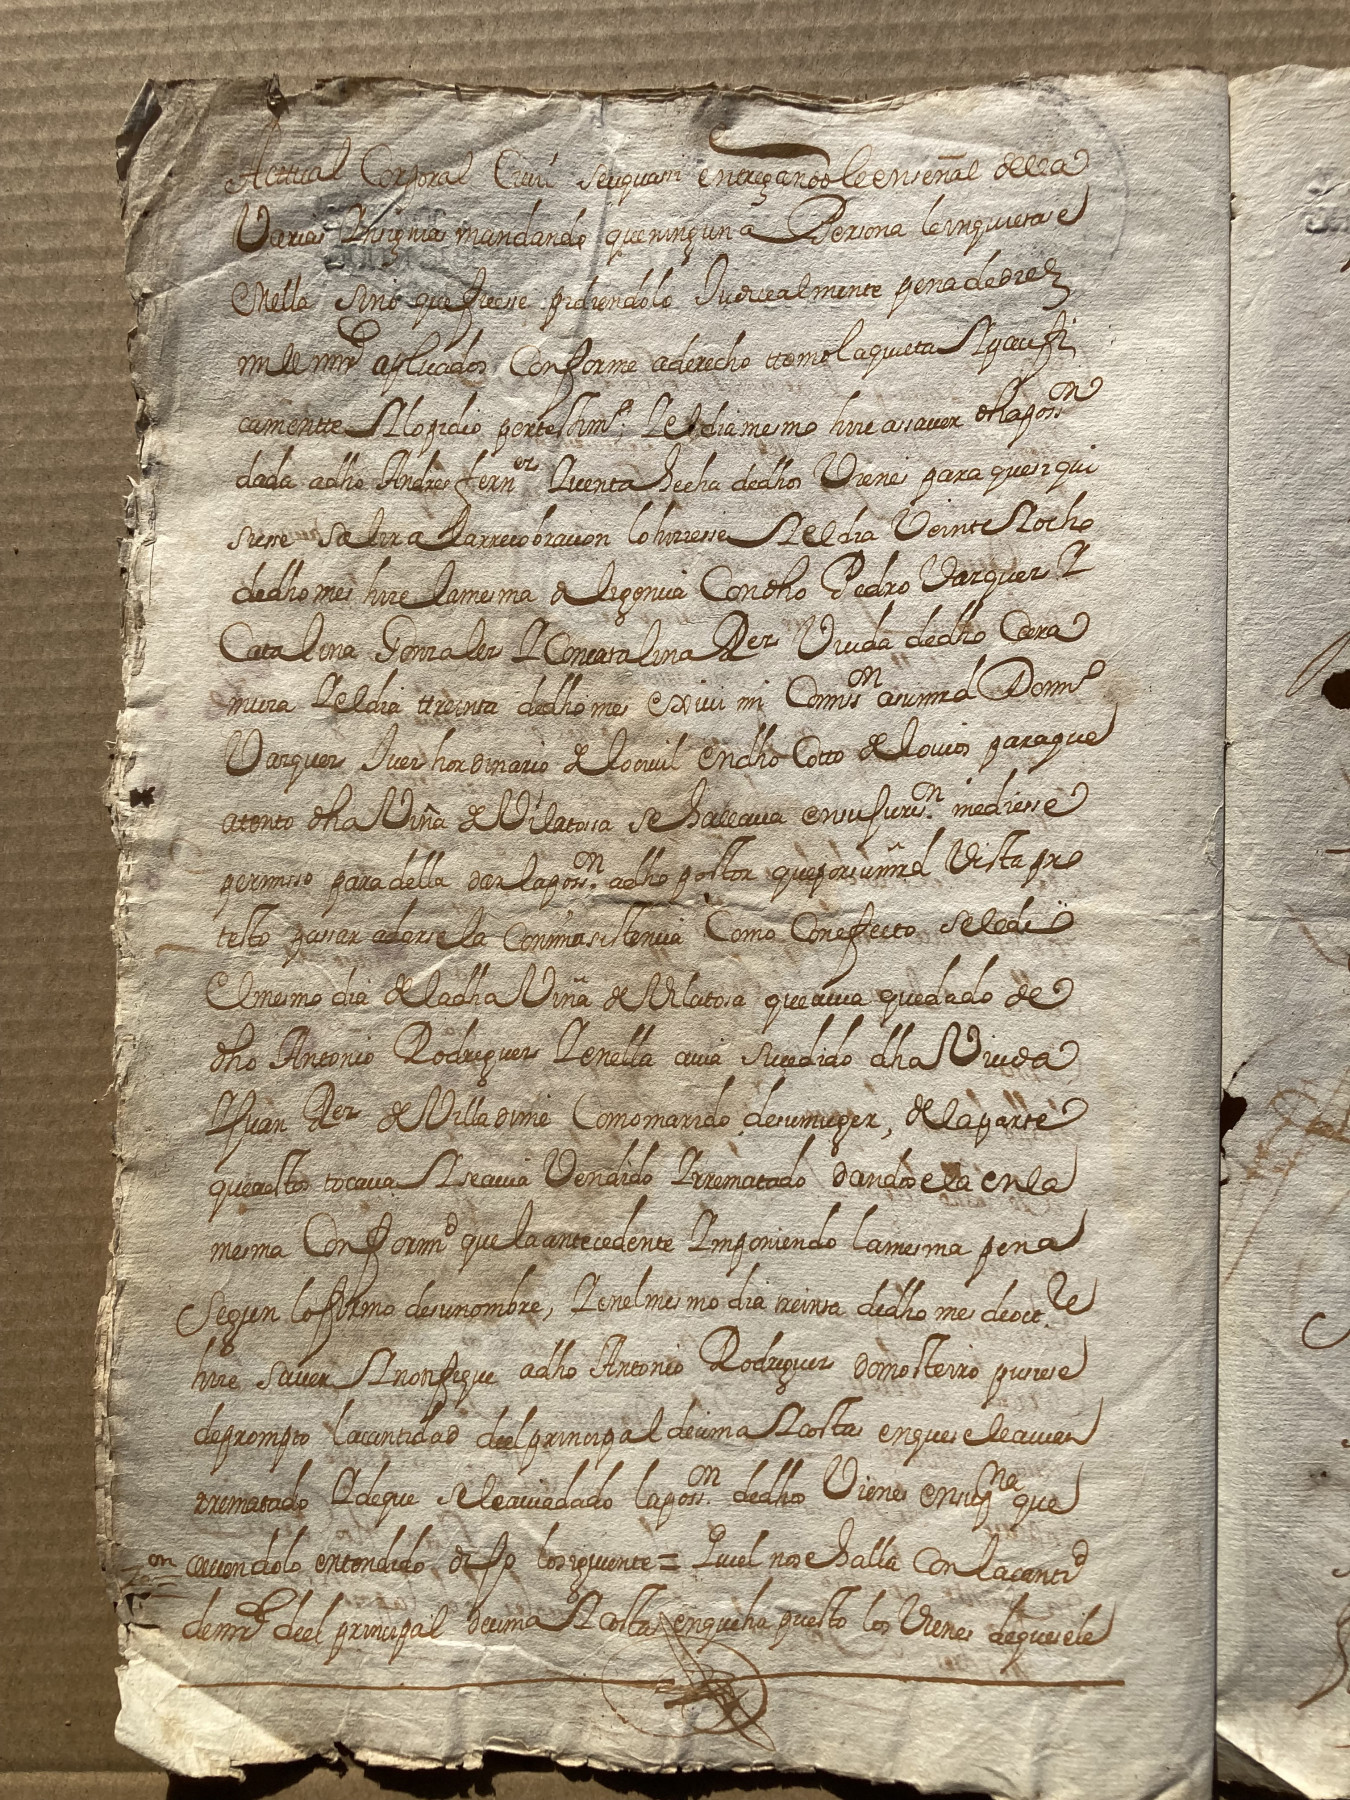 Acttual Corporal Civil seuquasi entregandole en señal della
Varias Ynsignias mandando que ninguna Persona le inquietase
enella sino que fuesse pidiendolo Judicialmente pena de diez
mill mrs aplicados Conforme a derecho ttomola quieta Y pacifi
camentte Y lo pidio por testimo; Y el dia mesmo hice a saver dha possn
dada a dho Andres ferners Y venta hecha de dhos Vienes para que si qui
siesse salir a la rrecobracion lo hiciesse Y el dia Veinte Y ocho
de dho mes hice la mesma diligencia Con dho Pedro Vazquez Y
Catalina Gonzalez Y Con catalina Rez Viuda de dho Cara
muza Y el dia ttreinta de dho mes exivi mi Comissn a su mrd Domo
Vazquez Juez hordinario de lo civil en dho Cotto de lovios para que
atento dha Viña de Vilatossa se hallava en su jurisn me diesse
permisso para della dar la possn a dho postor que por su mrd Vista pre
testo passar a darsela Con mi asistencia Como Con effecto se le dio
el mesmo dia de la dha Viña de Vilatossa que avia quedado de
dho Antonio Rodriguez Y enella avia sucedido dha Viuda
Y Juan Rez de Villadime Como marido de su muger, de la parte
que a estos tocava Y se avia Vendido Y rrematado dandosela en la
mesma Conformd que la antecedente Ymponiendo la mesma pena
Segun lo firmo de su nombre, Y enel mesmo dia treinta de dho mes de octre
hice saver Y notifique a dho Antonio Rodriguez domosteiro pusiese
de prompto la cantidad del principal decima Y costas en que se le avian
rrematado Y de que se le avia dado la possn de dhos Vienes en su pne que
aviendolo entendido dijo lo siguiente = Que el no se halla Con la cantid
de mrs del principal decima Y costas en que ha puesto los Vienes de que se le